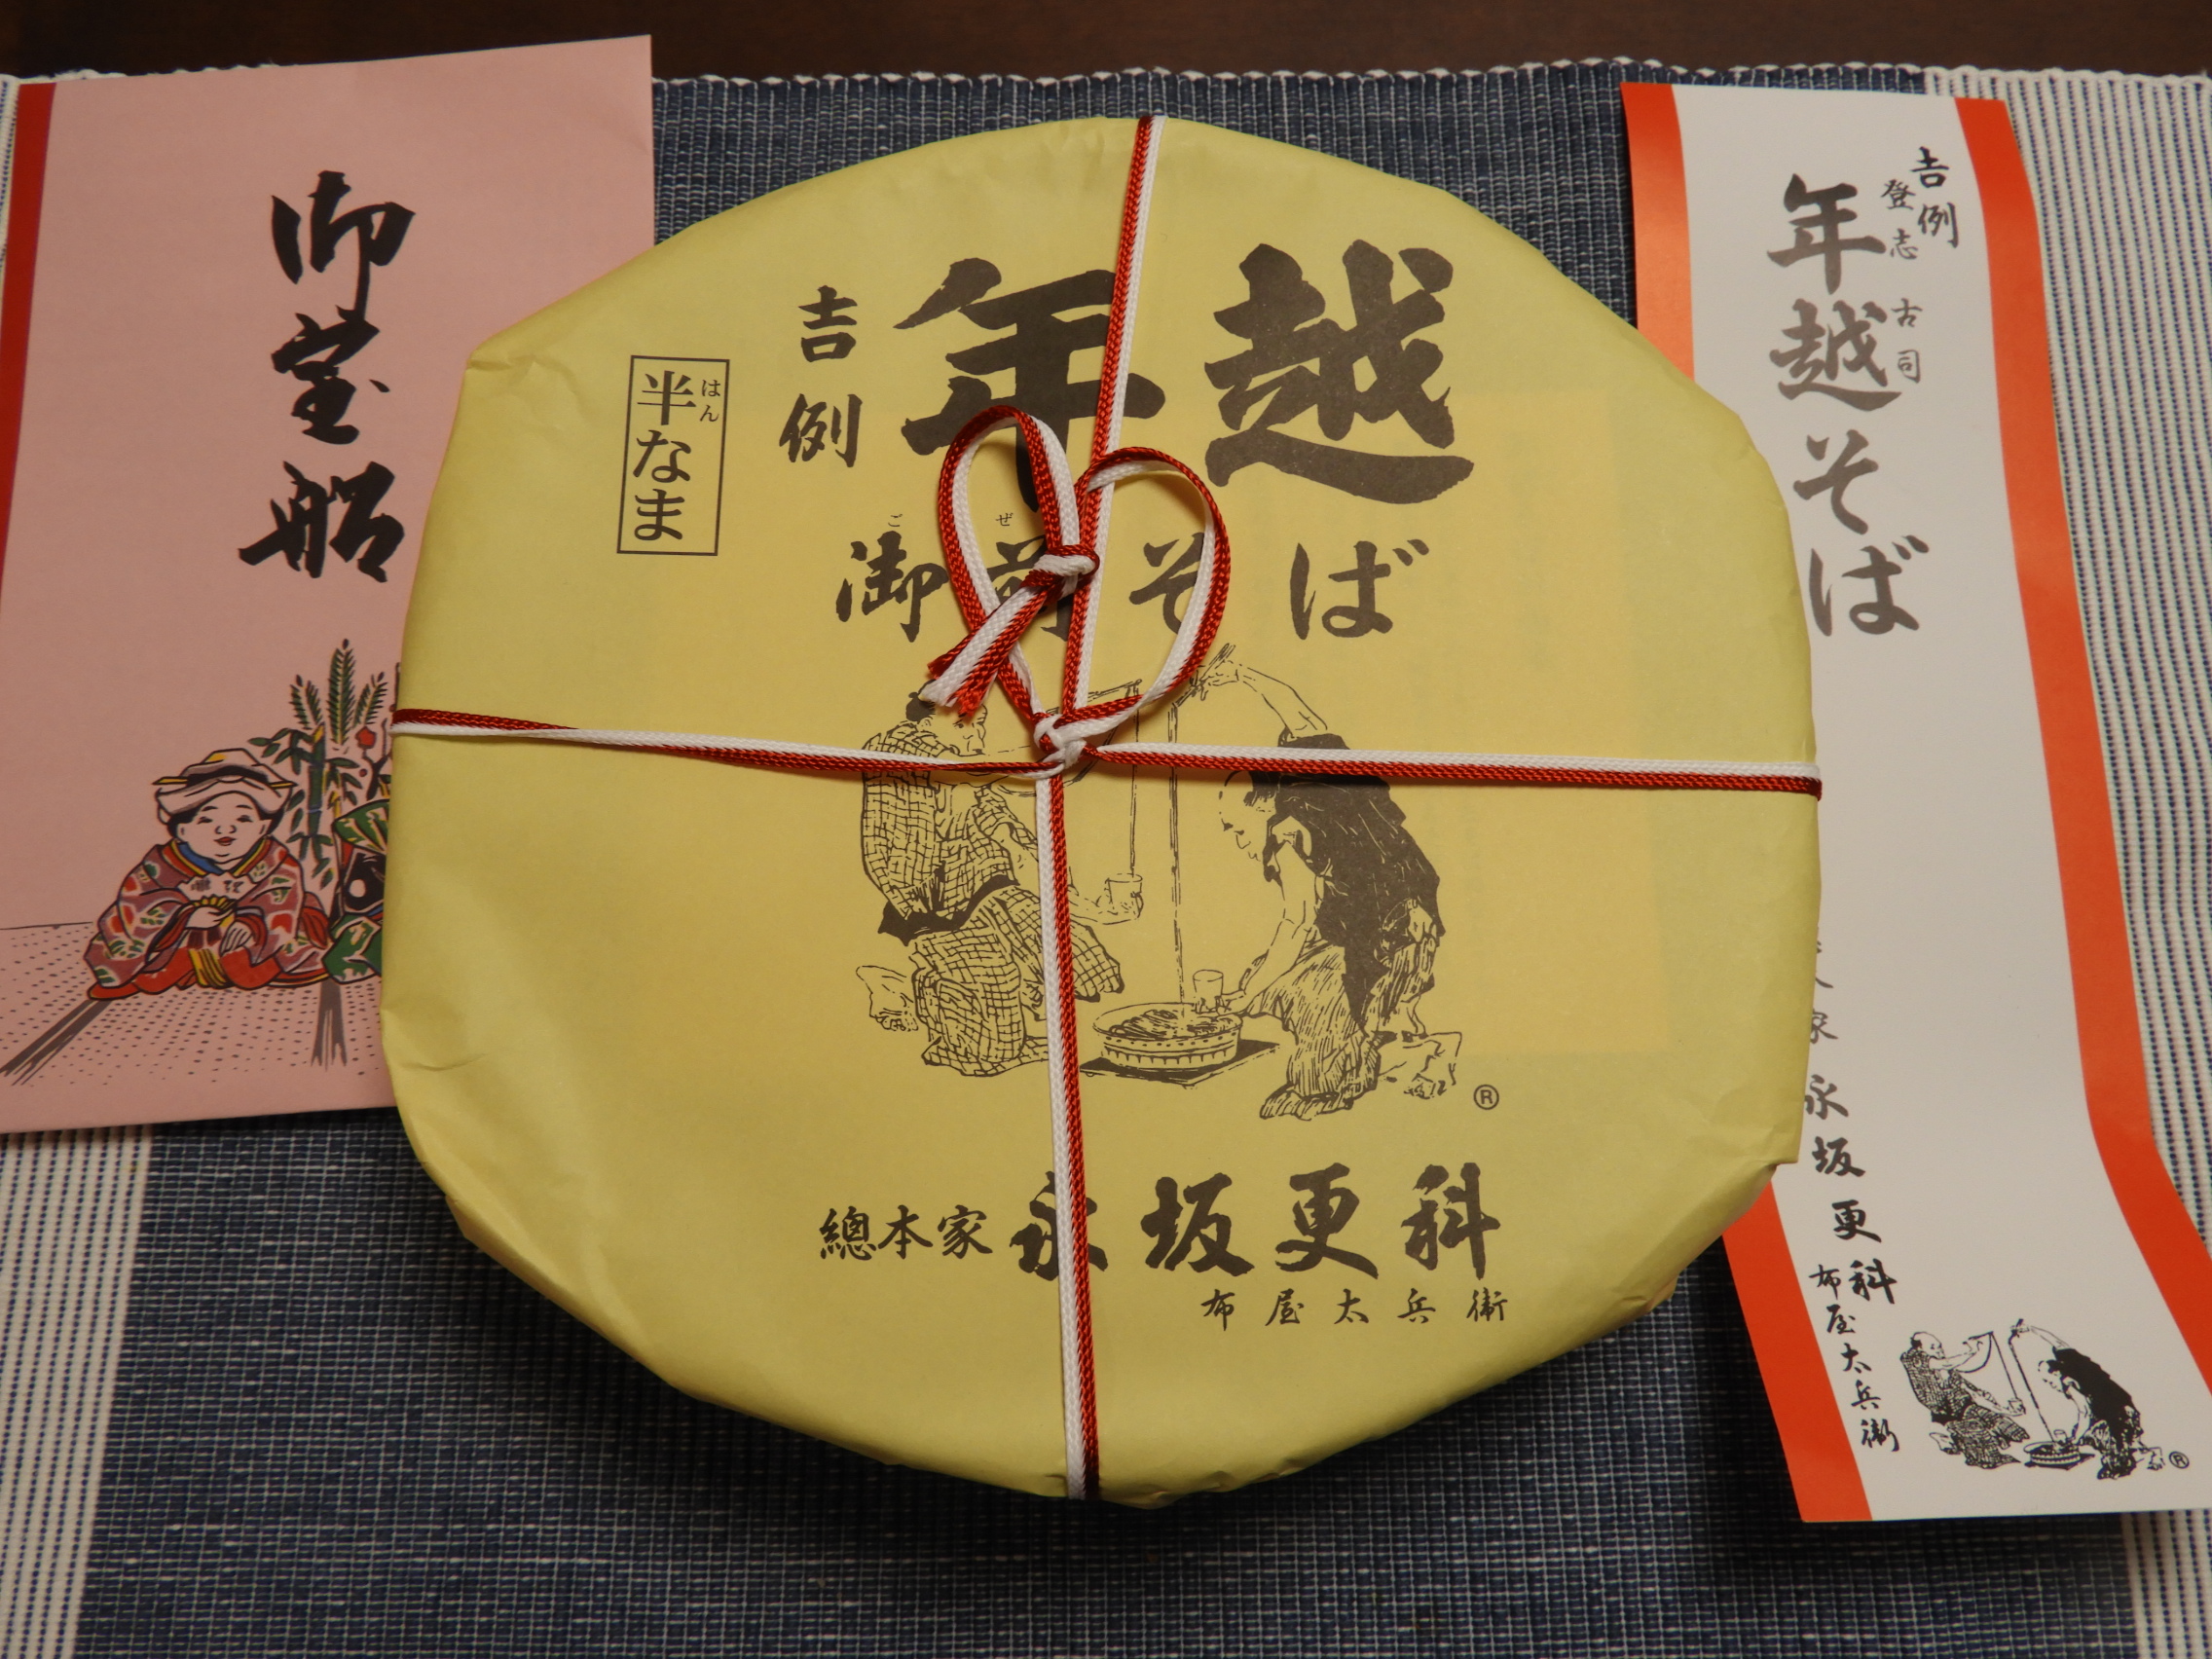 御宝船
吉例
年越
半なま
はん
ごぜ
御前そば
®
總本家 永坂更科
布屋太兵衛
吉例
登志古司
年越そば
家永坂更科
布屋太兵衛
®